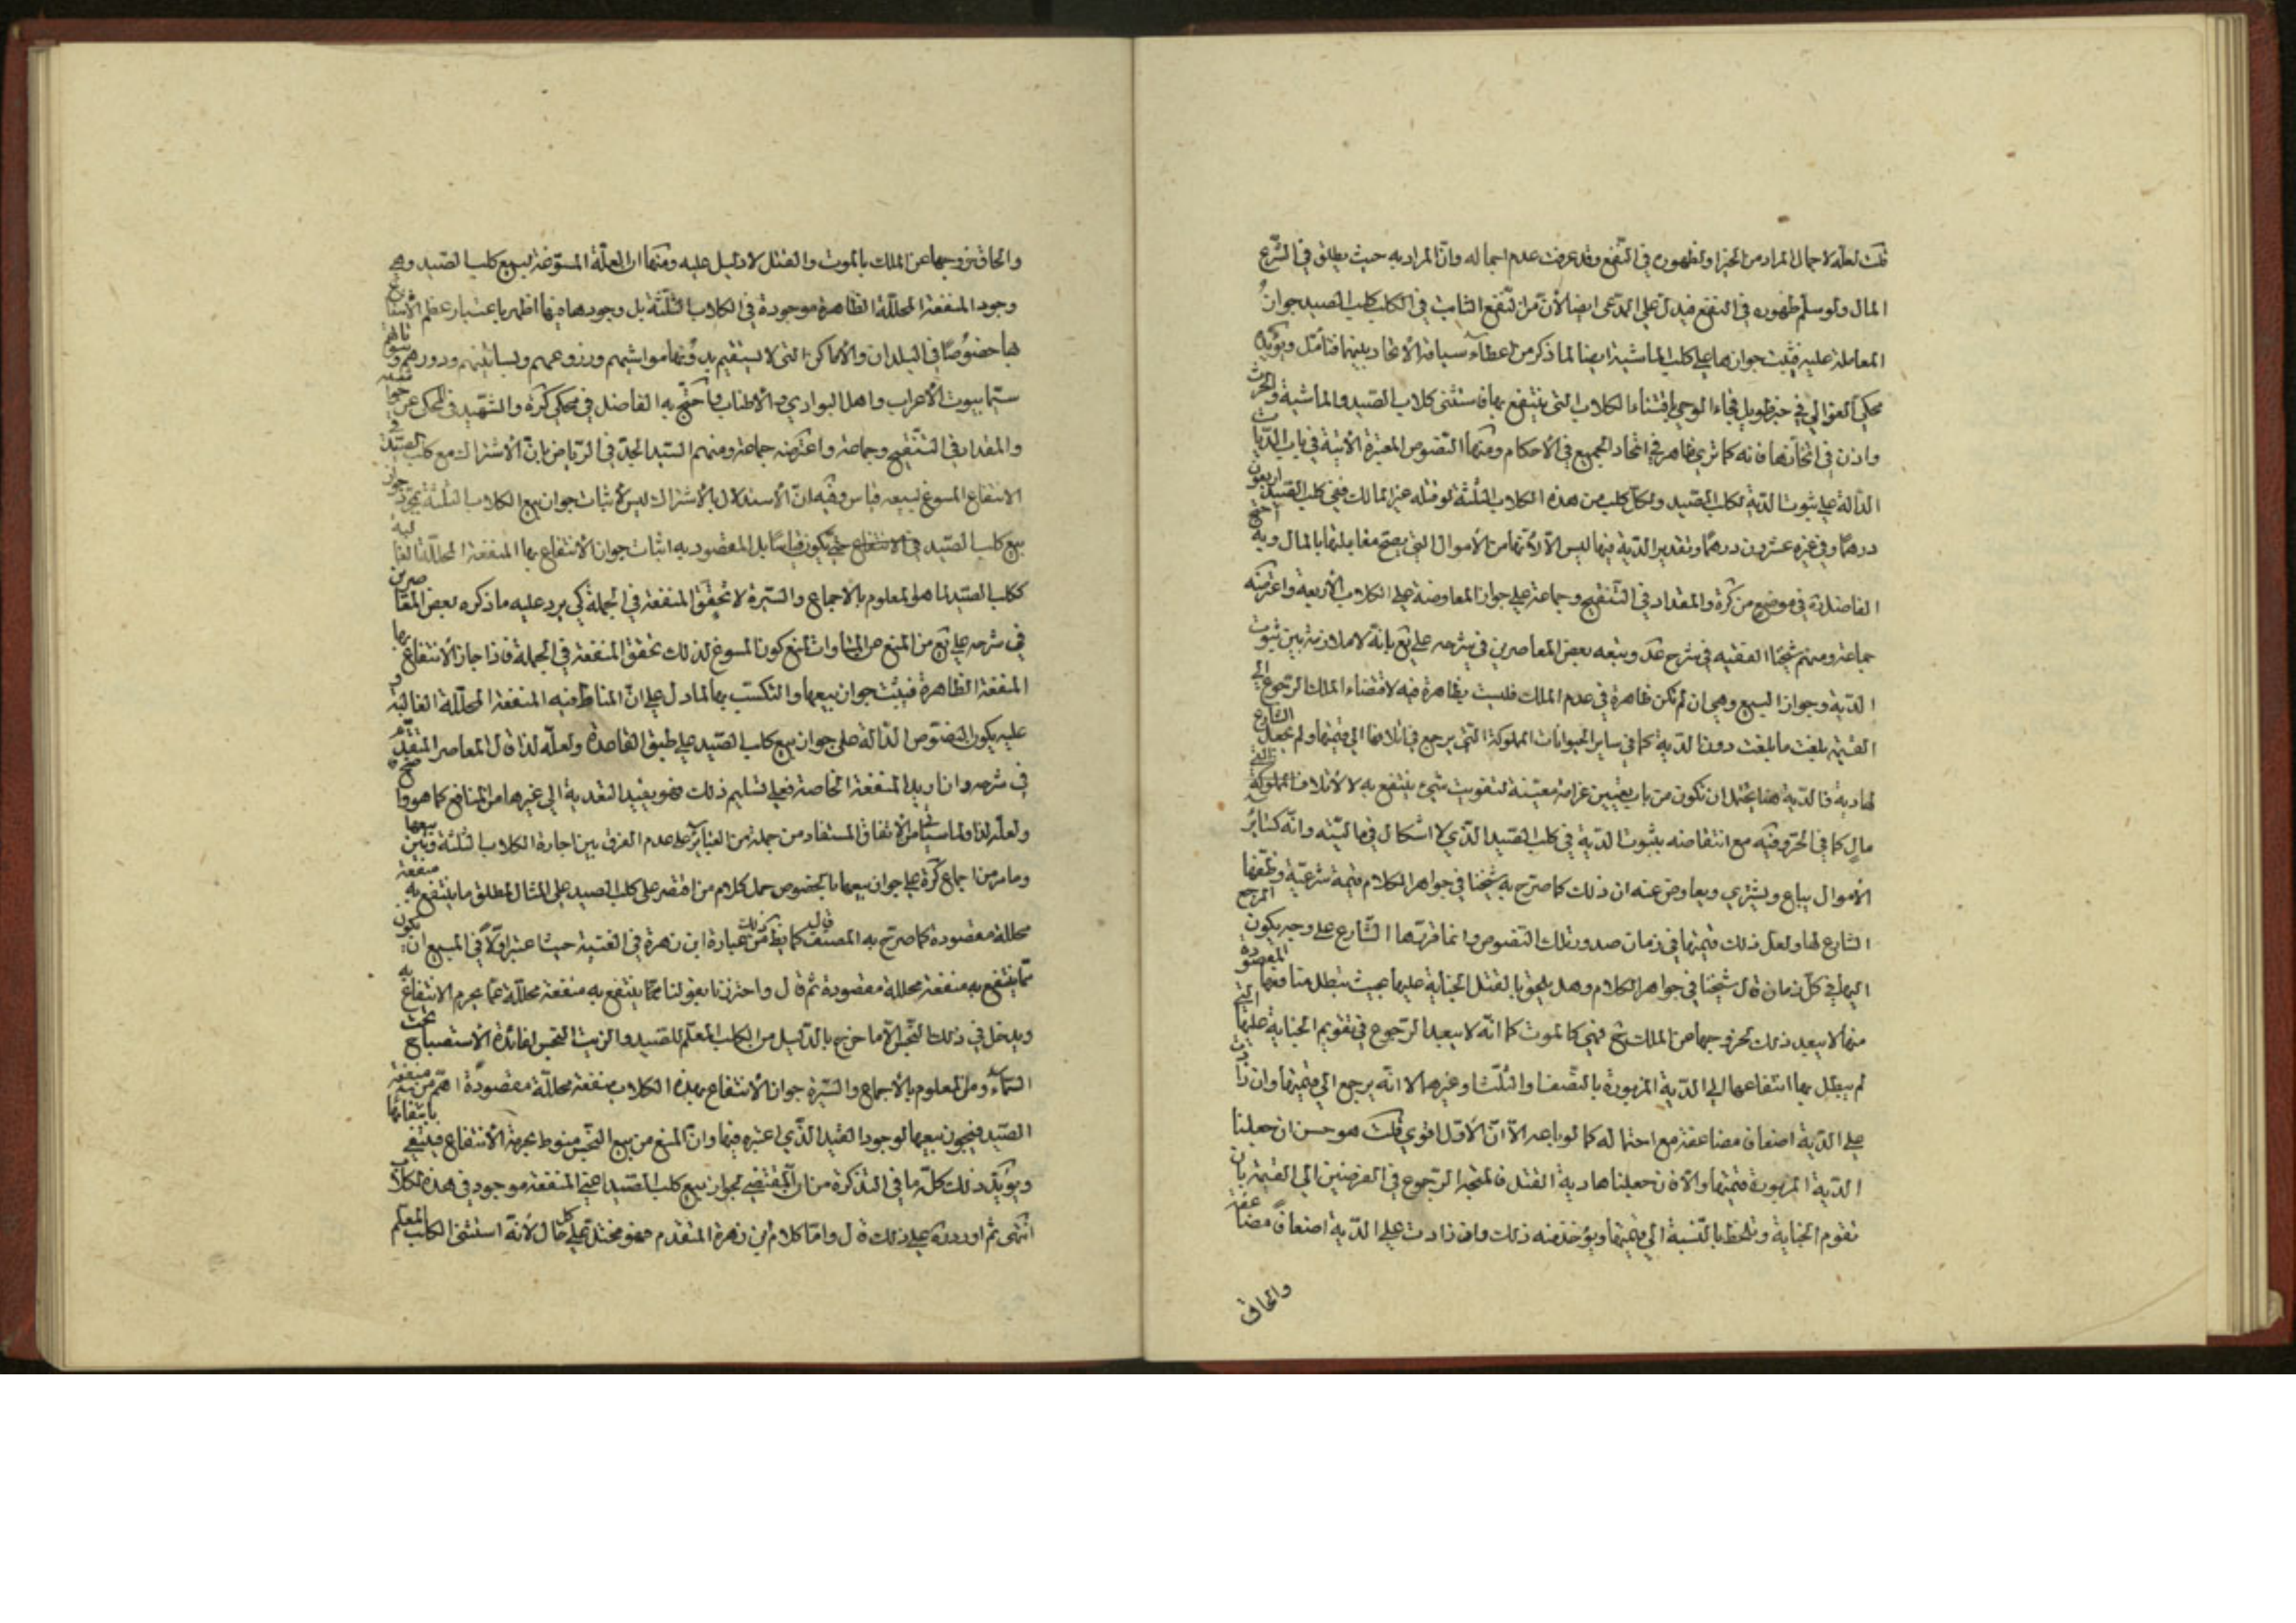 قلت لعله لاجمال المراد من الخبر او لظهوره في النفع وقد عرفت عدم اجماله وان المراد به حيث يطلق في الشرع
المال ولو سلم ظهوره في النفع فيدل على المدعى ايضا لأن من النفع الثابت في الكلب كلب الصيد جواز
المعاملة عليه فيثبت جوازها على كلب الماشية ايضا لما ذكر من اعطاء سياقة الاتحاد بينهما فتأمل ويؤيده
محكي العوالي في خبر طويل فجاء الوحي باقتناء الكلاب التي ينتفع بها فاستثنى كلاب الصيد والماشية والحرث
واذن في اتخاذها فانه كما ترى ظاهر في اتحاد الجميع في الأحكام ومنها النصوص المعتبرة الآتية في باب الديات
الدالة على ثبوت الدية لكلب الصيد ولكل كلب من هذه الكلاب الثلثة لو قتله غير المالك ففي كلب الصيد اربعون
درهما وفي غيره عشرون درهما وتقدير الدية فيها ليس الا لأنها من الأموال التي يصح مقابلتها بالمال وبه احتج
الفاضل ره في موضع من كره والمقداد في التنقيح وجماعة على جواز المعاوضة على الكلاب الأربعة واعترضه
جماعة ومنهم شيخنا الفقيه في شرح عد وتبعه بعض المعاصرين في شرحه على يع بانه لا ملازمة بين ثبوت
الدية وجواز البيع وهي ان لم تكن ظاهرة في عدم الملك فليست بظاهرة فيه لاقتضاء الملك الرجوع الى
القيمة بلغت ما بلغت دون الدية كما في ساير الحيوانات المملوكة التي يرجع في اتلافها الى قيمتها ولم يجعل الشارع
لها دية فالدية هنا يحتمل ان تكون من باب تعيين غرامة معينة لتفويت شيء ينتفع به لا لأتلاف المملوكة
مال كما في الحر وفيه مع انتقاضه بثبوت الدية في كلب الصيد الذي لا اشكال في ماليته وانه كسائر
الأموال يباع ويشترى ويعاوض عنه ان ذلك كما صرح به شيخنا في جواهر الكلام قيمة شرعية وظفها
الشارع لها ولعل ذلك قيمتها في زمان صدور تلك النصوص وانما قررها الشارع على وجه يكون المرجع
اليها في كل زمان قال شيخنا في جواهر الكلام وهل يلحق بالقتل الجناية عليها بحيث تبطل منافعها المقصودة
منها لا يبعد ذلك لخروجها عن الملك فهي كالموت كما انه لا يبعد الرجوع في تقويم الجناية عليها التي
لم يبطل بها انتفاعها الى الدية المزبورة بالنصف او الثلث او غيرهما لا انه يرجع الى قيمتها وان زادت
على الدية اضعاف مضاعفة مع احتماله كما لو باعه الا ان الأول اقوى قلت هو حسن ان جعلنا
الدية المزبورة قيمتها والا فان جعلناها دية القتل فالمتجه الرجوع في الفرضين الى القيمة بان
تقوم الجناية وتلحظ بالنسبة الى قيمتها ويؤخذ منه ذلك وان زادت على الدية اضعافا مضاعفة
والحاق
والحاق خروجها عن الملك بالموت والقتل لا دليل عليه ومنها ان العلة المسوغة لبيع كلب الصيد وهي
وجود المنفعة المحللة الظاهرة موجودة في الكلاب الثلثة بل وجودها فيها اظهر باعتبار عظم الأنتفاع
بها خصوصا في البلدان والأماكن التي لا يستقيم بدونها مواشيهم وزروعهم وبساتينهم ودورهم
سيما بيوت الأعراب واهل البوادي والأطناب احتج به الفاضل في محكي كره والشهيد في المحكي عن
والمقداد في التنقيح وجماعة واعترضه جماعة ومنهم السيد الجد في الرياض بان الأشتراك مع كلب الصيد في
الانتفاع المسوغ لبيعه قياس وفيه ان الأستدلال بالأشتراك ليس لأثبات جواز بيع الكلاب الثلثة بجواز
بيع كلب الصيد في الانتفاع حتى يكون قياسا بل المقصود به اثبات جواز الأنتفاع بها المنفعة المحللة الغالبة
ككلب الصيد لما هو المعلوم بالأجماع والسيرة لا تحقق المنفعة في الجملة كي يرد عليه ما ذكره بعض المعاصرين
في شرحه على يع من المنع عن المساواة لمنع كون المسوغ لذلك تحقق المنفعة في الجملة فاذا جاز الأنتفاع بها
المنفعة الظاهرة فيثبت جواز بيعها والتكسب بها لما دل على ان المناط فيه المنفعة المحللة الغالبة و
عليه يكون النصوص الدالة على جواز بيع كلب الصيد على طبق القاعدة ولعله لذا قال المعاصر المتقدم
في شرحه وان اريد المنفعة الخاصة فعلى تسليم ذلك فهو يفيد التعدية الى غيرها من المنافع كما هو
ولعله لذا ولما سيأتي من الأتفاق المستفاد من جملة من العبائر على عدم الفرق بين اجارة الكلاب الثلثة وبين بيعها
وما مر من اجماع كره على جواز بيعها بالخصوص حمل كلام من اقتصر على كلب الصيد على المثال لمطلق ما ينتفع به منفعة
محللة مقصودة كما صرح به المصنف كما يظهر ذلك من عبارة ابن زهرة في الغنية حيث اعتبر اولا في المبيع ان يكون
مما ينتفع به منفعة محللة مقصودة ثم قال واحترزنا بقولنا مما ينتفع به منفعة محللة عما يحرم الانتفاع به
ويدخل في ذلك النجس الا ما خرج بالدليل من الكلب المعلم للصيد والزيت النجس لفائدة الأستصباح تحت
السماء ومن المعلوم بالأجماع والسيرة جواز الأنتفاع بهذه الكلاب منفعة محللة مقصودة اهم من منفعة
الصيد فيجوز بيعها لوجود القيد الذي اعتبره فيها وان المنع من بيع النجس منوط بحرمة الأنتفاع فينتفي بانتفائها
ويؤيد ذلك كله ما في التذكرة من ان المقتضي لجواز بيع كلب الصيد اعني المنفعة موجود في هذه الكلاب
انتهى ثم اورده على ذلك قال واما كلام ابن زهرة المتقدم فهو مختل على كل حال لأنه استثنى الكلب المعلم